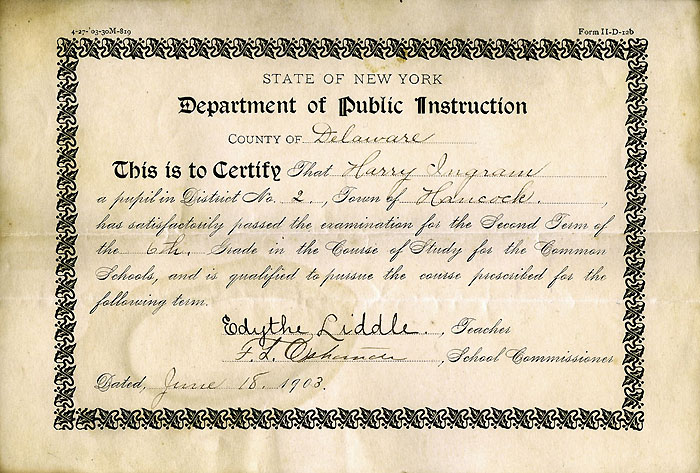 4-27-'03-30M-819 Form II-D-12b
STATE OF NEW YORK
Department of Public Instruction
COUNTY OF Delaware
This is to Certify That Harry Ingram
a pupil in District No. 2, Town of Hancock.,
has satisfactorily passed the examination for the Second Term of
the 6th. Grade in the Course of Study for the Common
Schools, and is qualified to pursue the course prescribed for the
following term.
Edythe Liddle, Teacher
F. L. , School Commissioner
Dated, June 18, 1903.